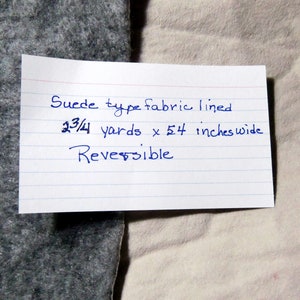 Suede type fabric lined
2 3/4 yards x 54 inches wide
Reversible